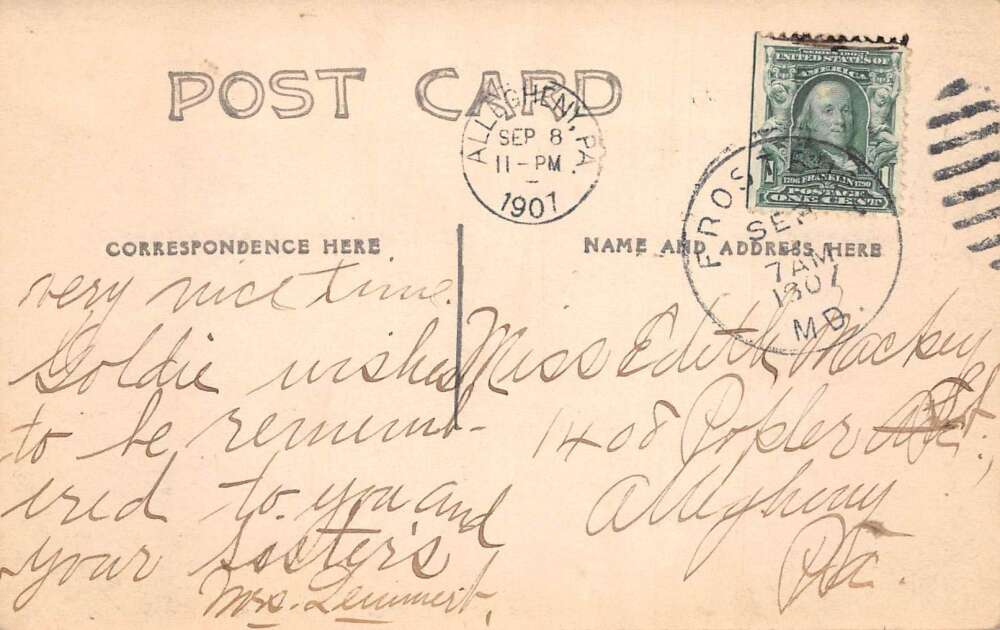 POST CARD
ALLEGHENY, PA.
SEP 8
11-PM
1907
SERIES 1902
UNITED STATES OF
AMERICA
1706 FRANKLIN 1790
POSTAGE
ONE CENT
1 1
FROST
SEP
7 AM
1907
MD.
CORRESPONDENCE HERE
NAME AND ADDRESS HERE
very nice time.
Goldie wishes
to be rememb-
ered to you and
your sister's
Mrs. Lemmert,
Miss Edith Mackey
1408 Popler St.,
Allegheny
Pa.